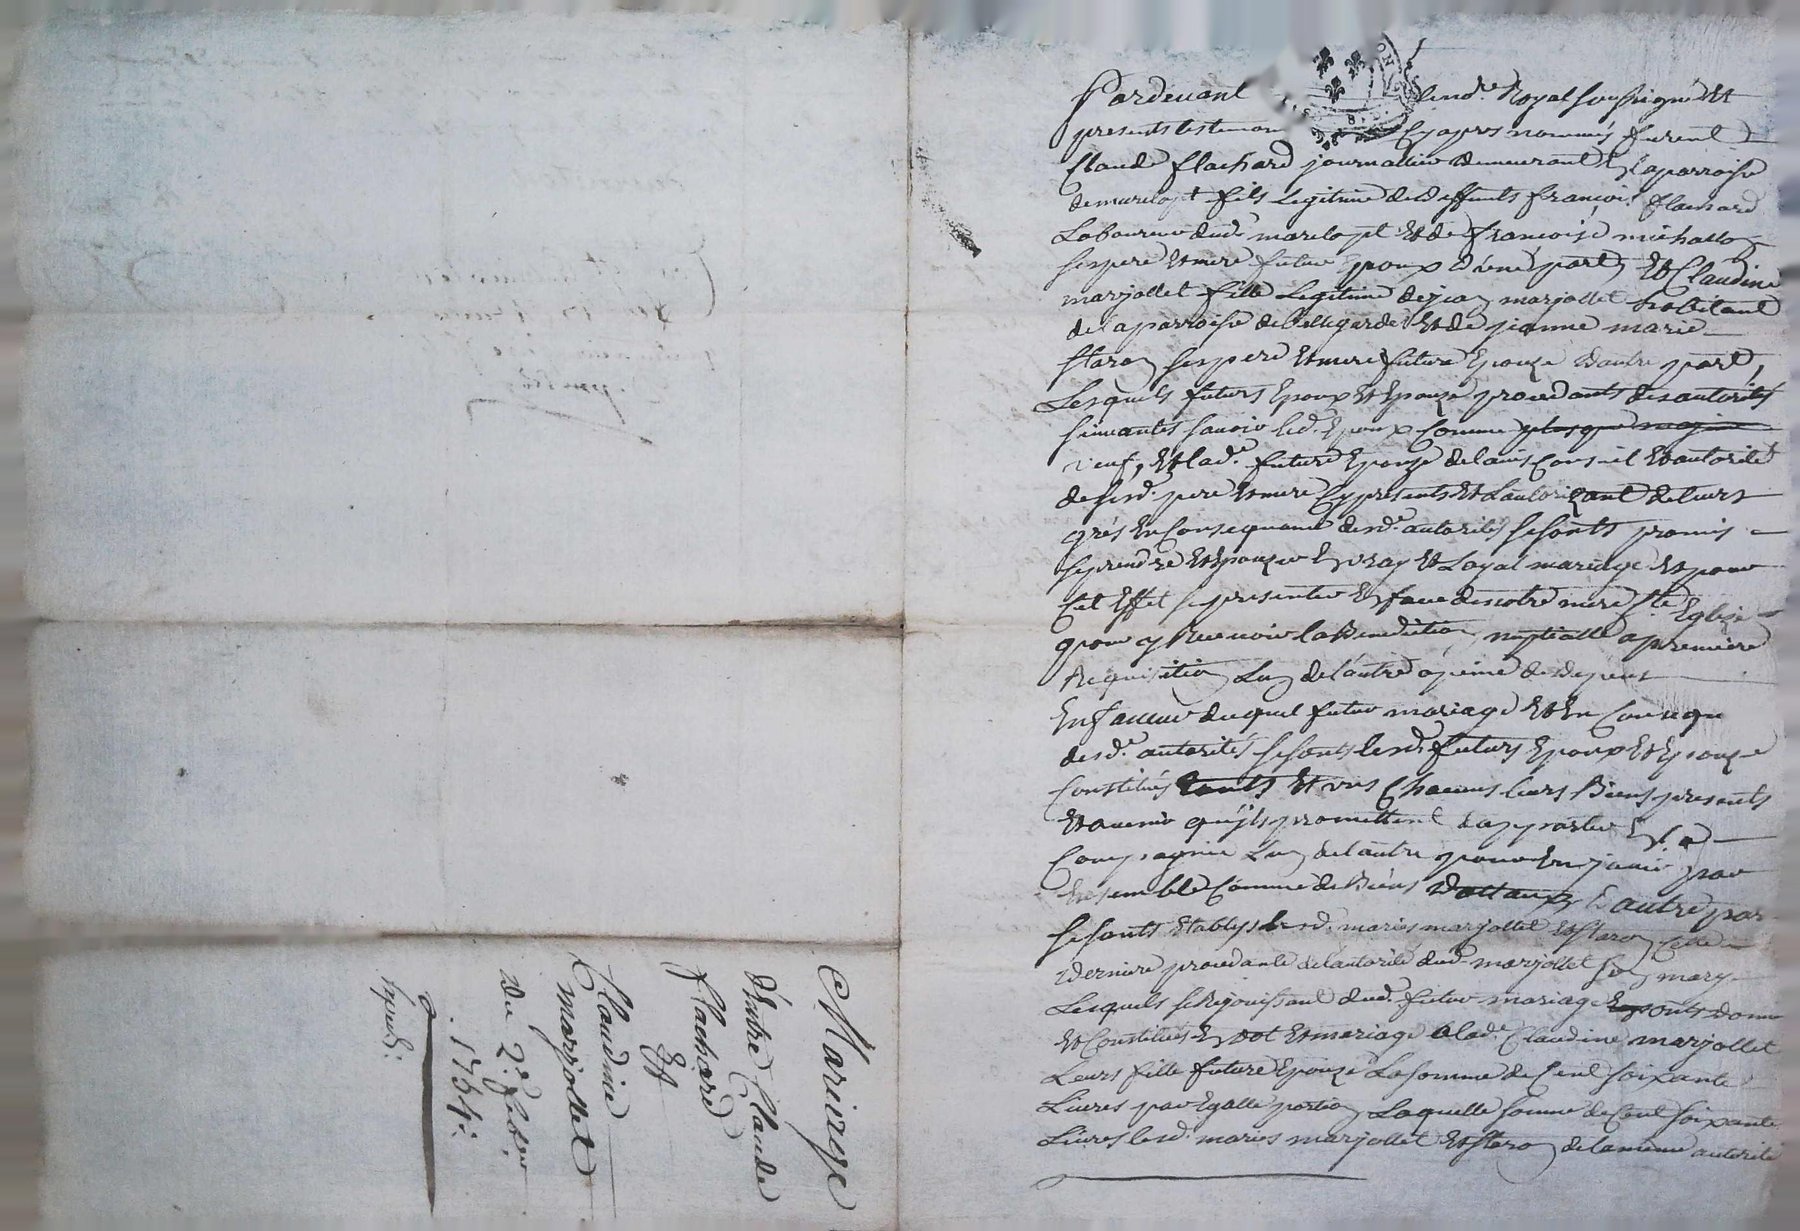 Pardevant nore Royal soussigné Et
presents les temoins Cy apres nommés furent
Claude flachard journallier demeurant En la parroisse
de marclopt fils Legitime de deffunts françois flachard
Laboureur dud. marclopt Et de françoise michallon
ses pere Et mere futur Epoux d'une part, Et Claudine
marjollet fille Legitime de jean marjollet habitant
de la parroisse de bellegarde Et de jeanne marie
staron ses pere Et mere future Epouze d'autre part,
Lesquels futurs Epoux Et Epouze procedants des autorités
suivantes savoir led. Epoux Comme plus que majeur
veuf, Et lad.e future Epouze de l'avis Conseil Et autorité
de sesd. pere Et mere Cy presents Et L'autorizant de leurs
grés En Consequance desd.e autorités se sonts promis
se prendre Et Epouzer En vray Et Loyal mariage Et pour
Cet Effet se presenter En face de notre mere Ste Eglize
pour y Recevoir la Benediction nuptialle a premiere
Requisition L'un de l'autre a peine de depens
En faveur duquel futur mariage Et En Conseque
desd.e autorités se sonts lesd. futurs Epoux Et Epouze
Constitués touts Et uns Chacuns leurs Biens presents
Et avenir qu'ils promettent d'apporter En la
Compagnie L'un de l'autre pour En jouir par
Ensemble Comme de Biens dottaux d'autre par
se sonts Etablys lesd. mariés marjollet Et staron Cette
derniere procedante de l'autorité dud. marjollet son mary
Lesquels se Rejouissant dud. futur mariage onts donné
Et Constitué En dot Et mariage a lad.e Claudine marjollet
Leurs fille future Epouze La somme de Cent soixante
Livres par Egalle portion Laquelle somme de Cent soixante
Livres lesd. mariés marjollet Et staron de la meme autorité
Mariage
d'Entre Claude
flachard
Et
Claudine
marjollet
Du 2e febver
1754.